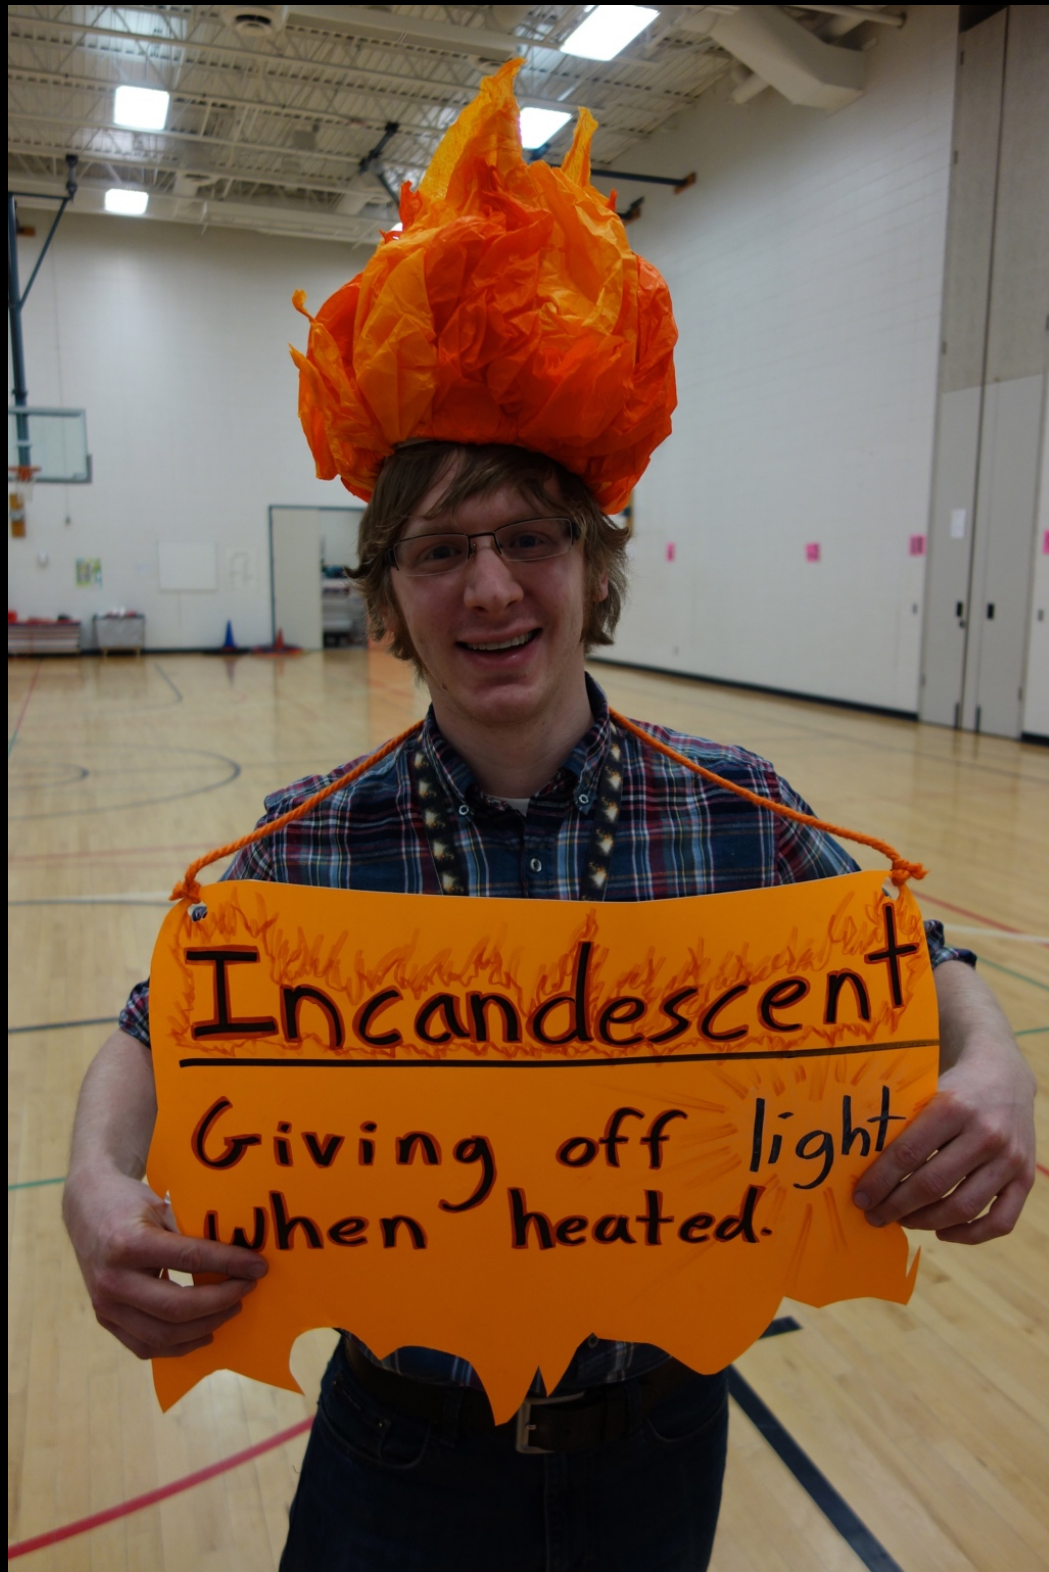 Incandescent
Giving off light
when heated.